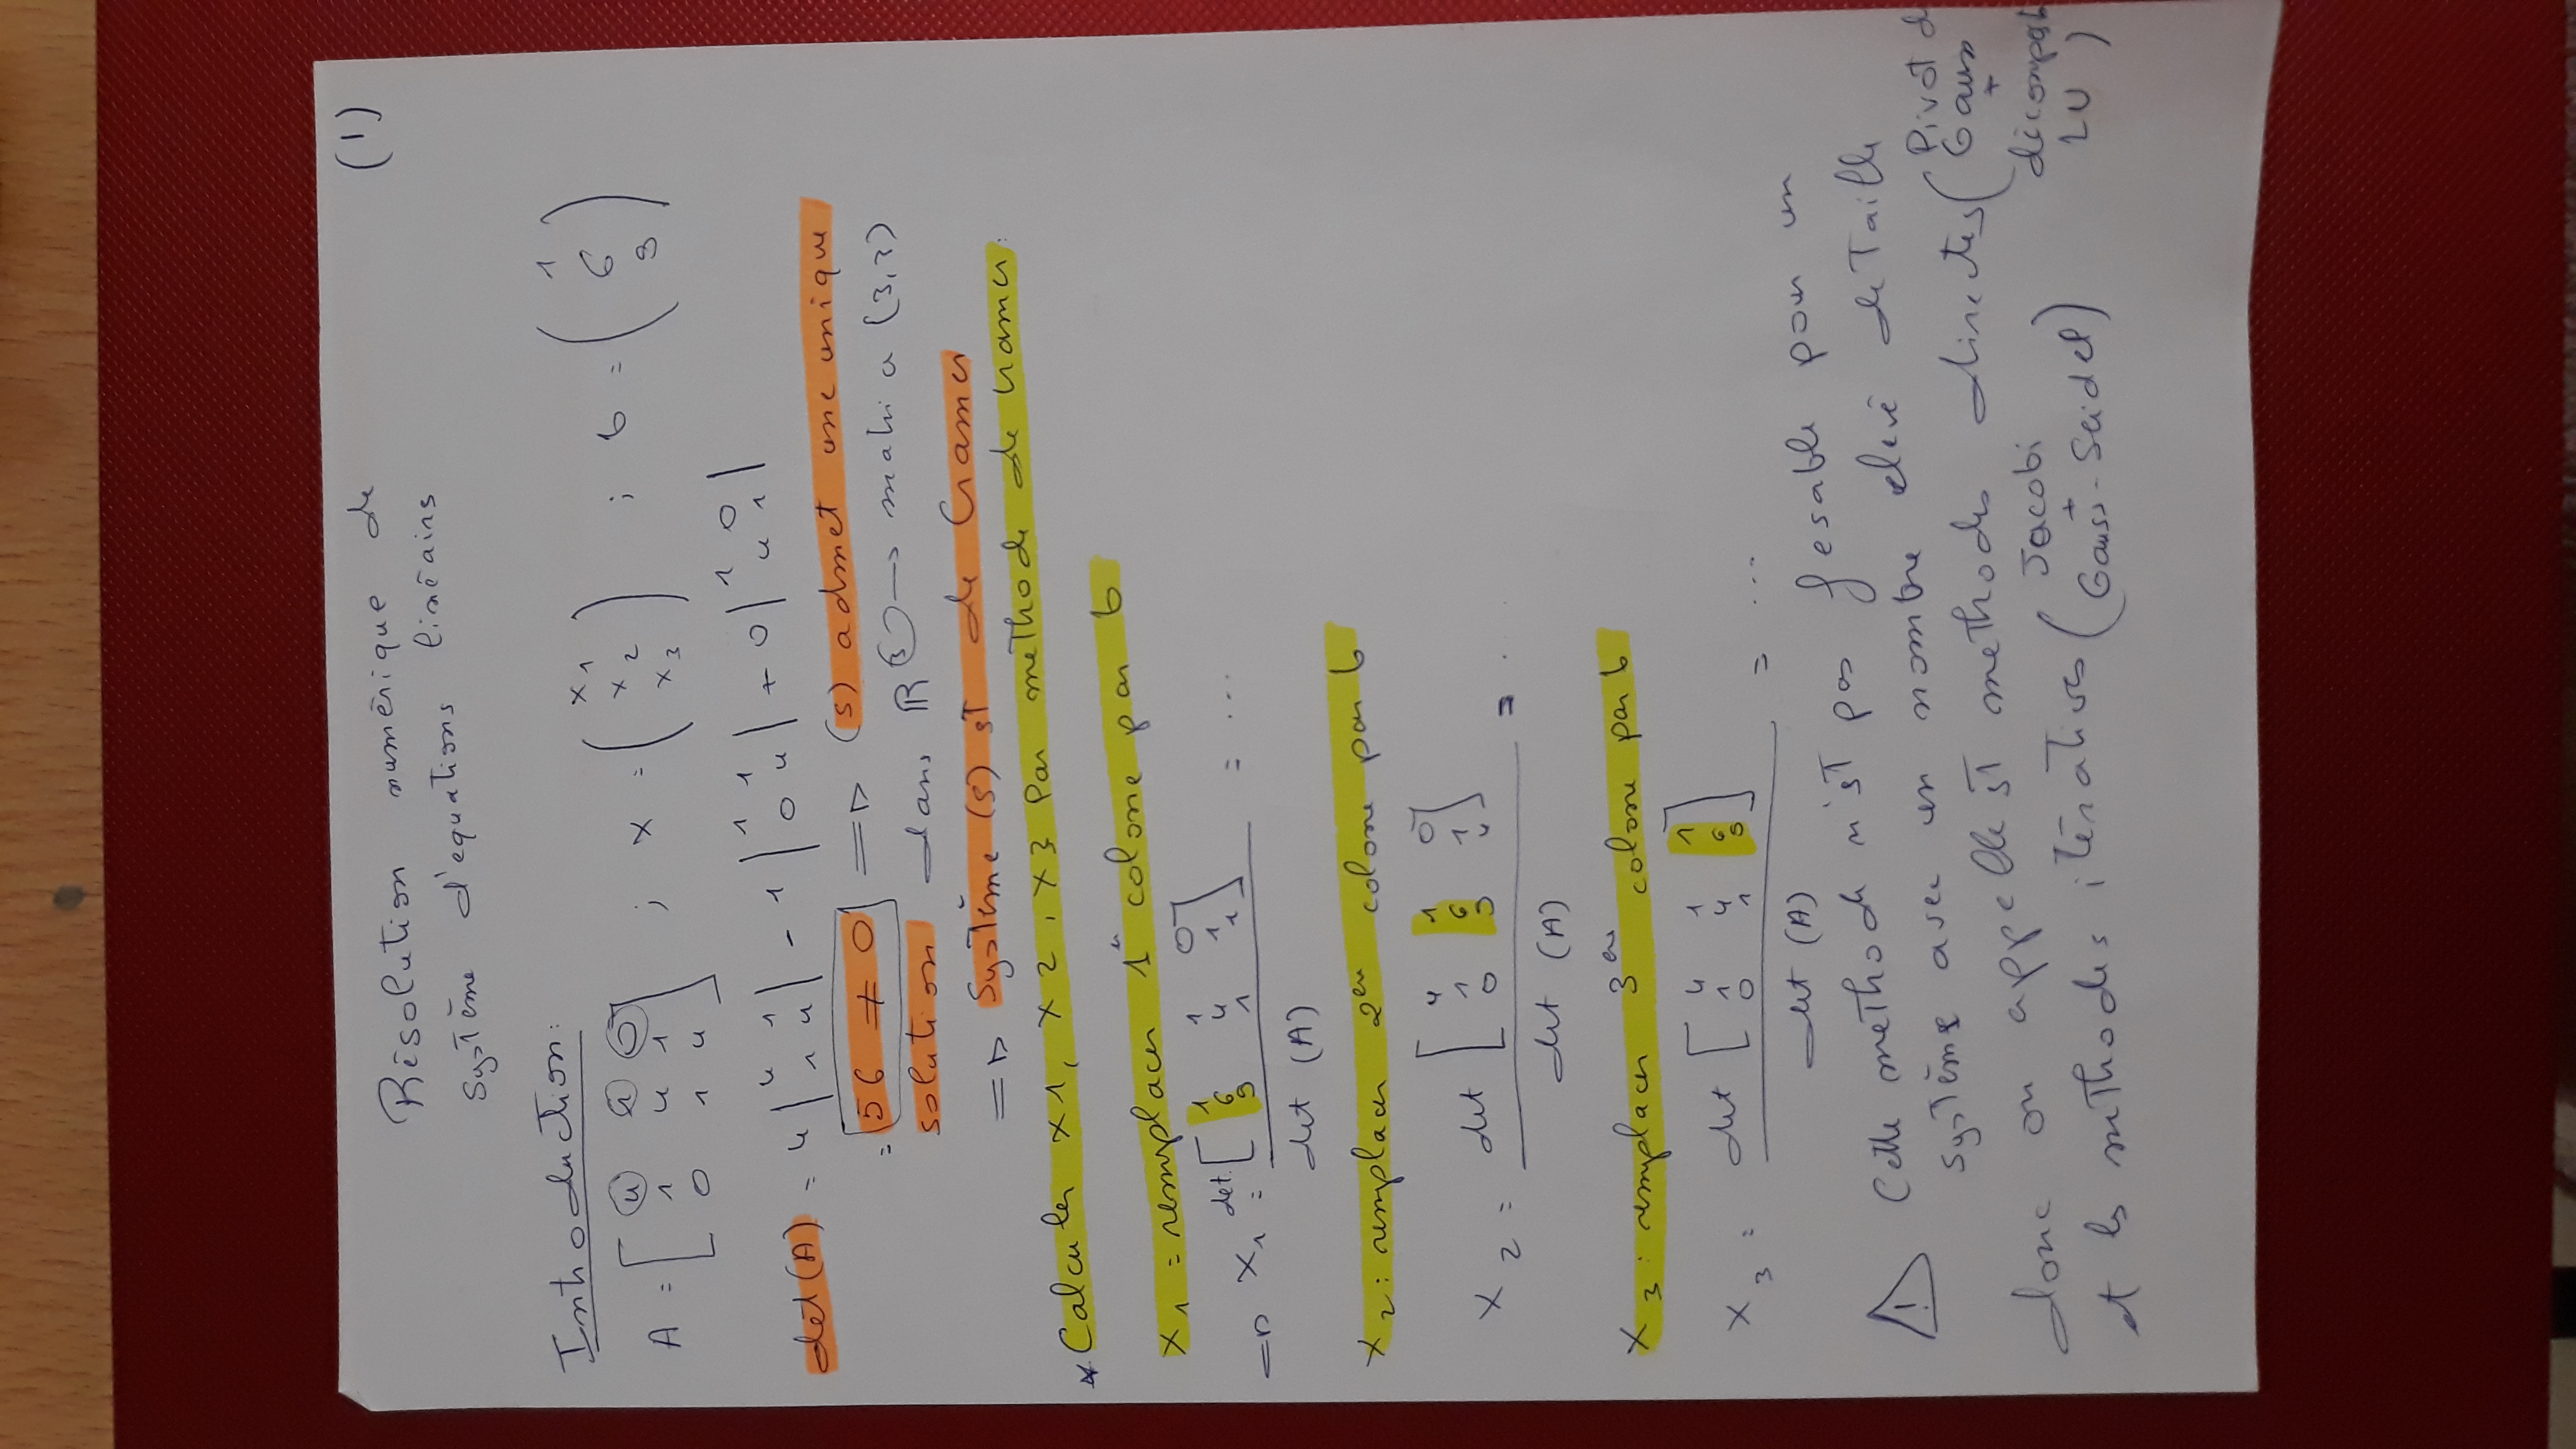 (1)
Résolution numérique de
Système d'equations linéairs
Introduction:
A = [ 4 1 0 ; x = ( x1 ; b = ( 1
1 4 1 x2 6
0 1 4 ] x3 ) 9 )
det(A) = 4 | 4 1 | - 1 | 1 1 | + 0 | 1 0 |
1 4 0 4 4 1
= 56 ≠ 0 => (s) admet une unique
solution dans R^3 -> matria (3,3)
=> Système (s) st de Cramer
* Calculer x1, x2, x3 Par methode de Cramer:
x1 = remplacer 1er colone par b
=> x1 = det. [ 1 1 0
6 4 1
9 1 1 ] = ...
det (A)
x2 : remplacer 2em colone par b
x2 = det [ 4 1 0
1 6 1
0 9 4 ] = ..
det (A)
x3 : remplacer 3em colone par b
x3 = det [ 4 1 1
1 4 6
0 1 9 ] = ...
det (A)
! Cette methode n'st pas fesable pour un
système avec un nombre elevé de Taille
donc on appelle st methodes directes ( Pivot d
Gauss
+
décomposit
LU )
et ls methodes itératives ( Jacobi
+
Gauss-Seidel )